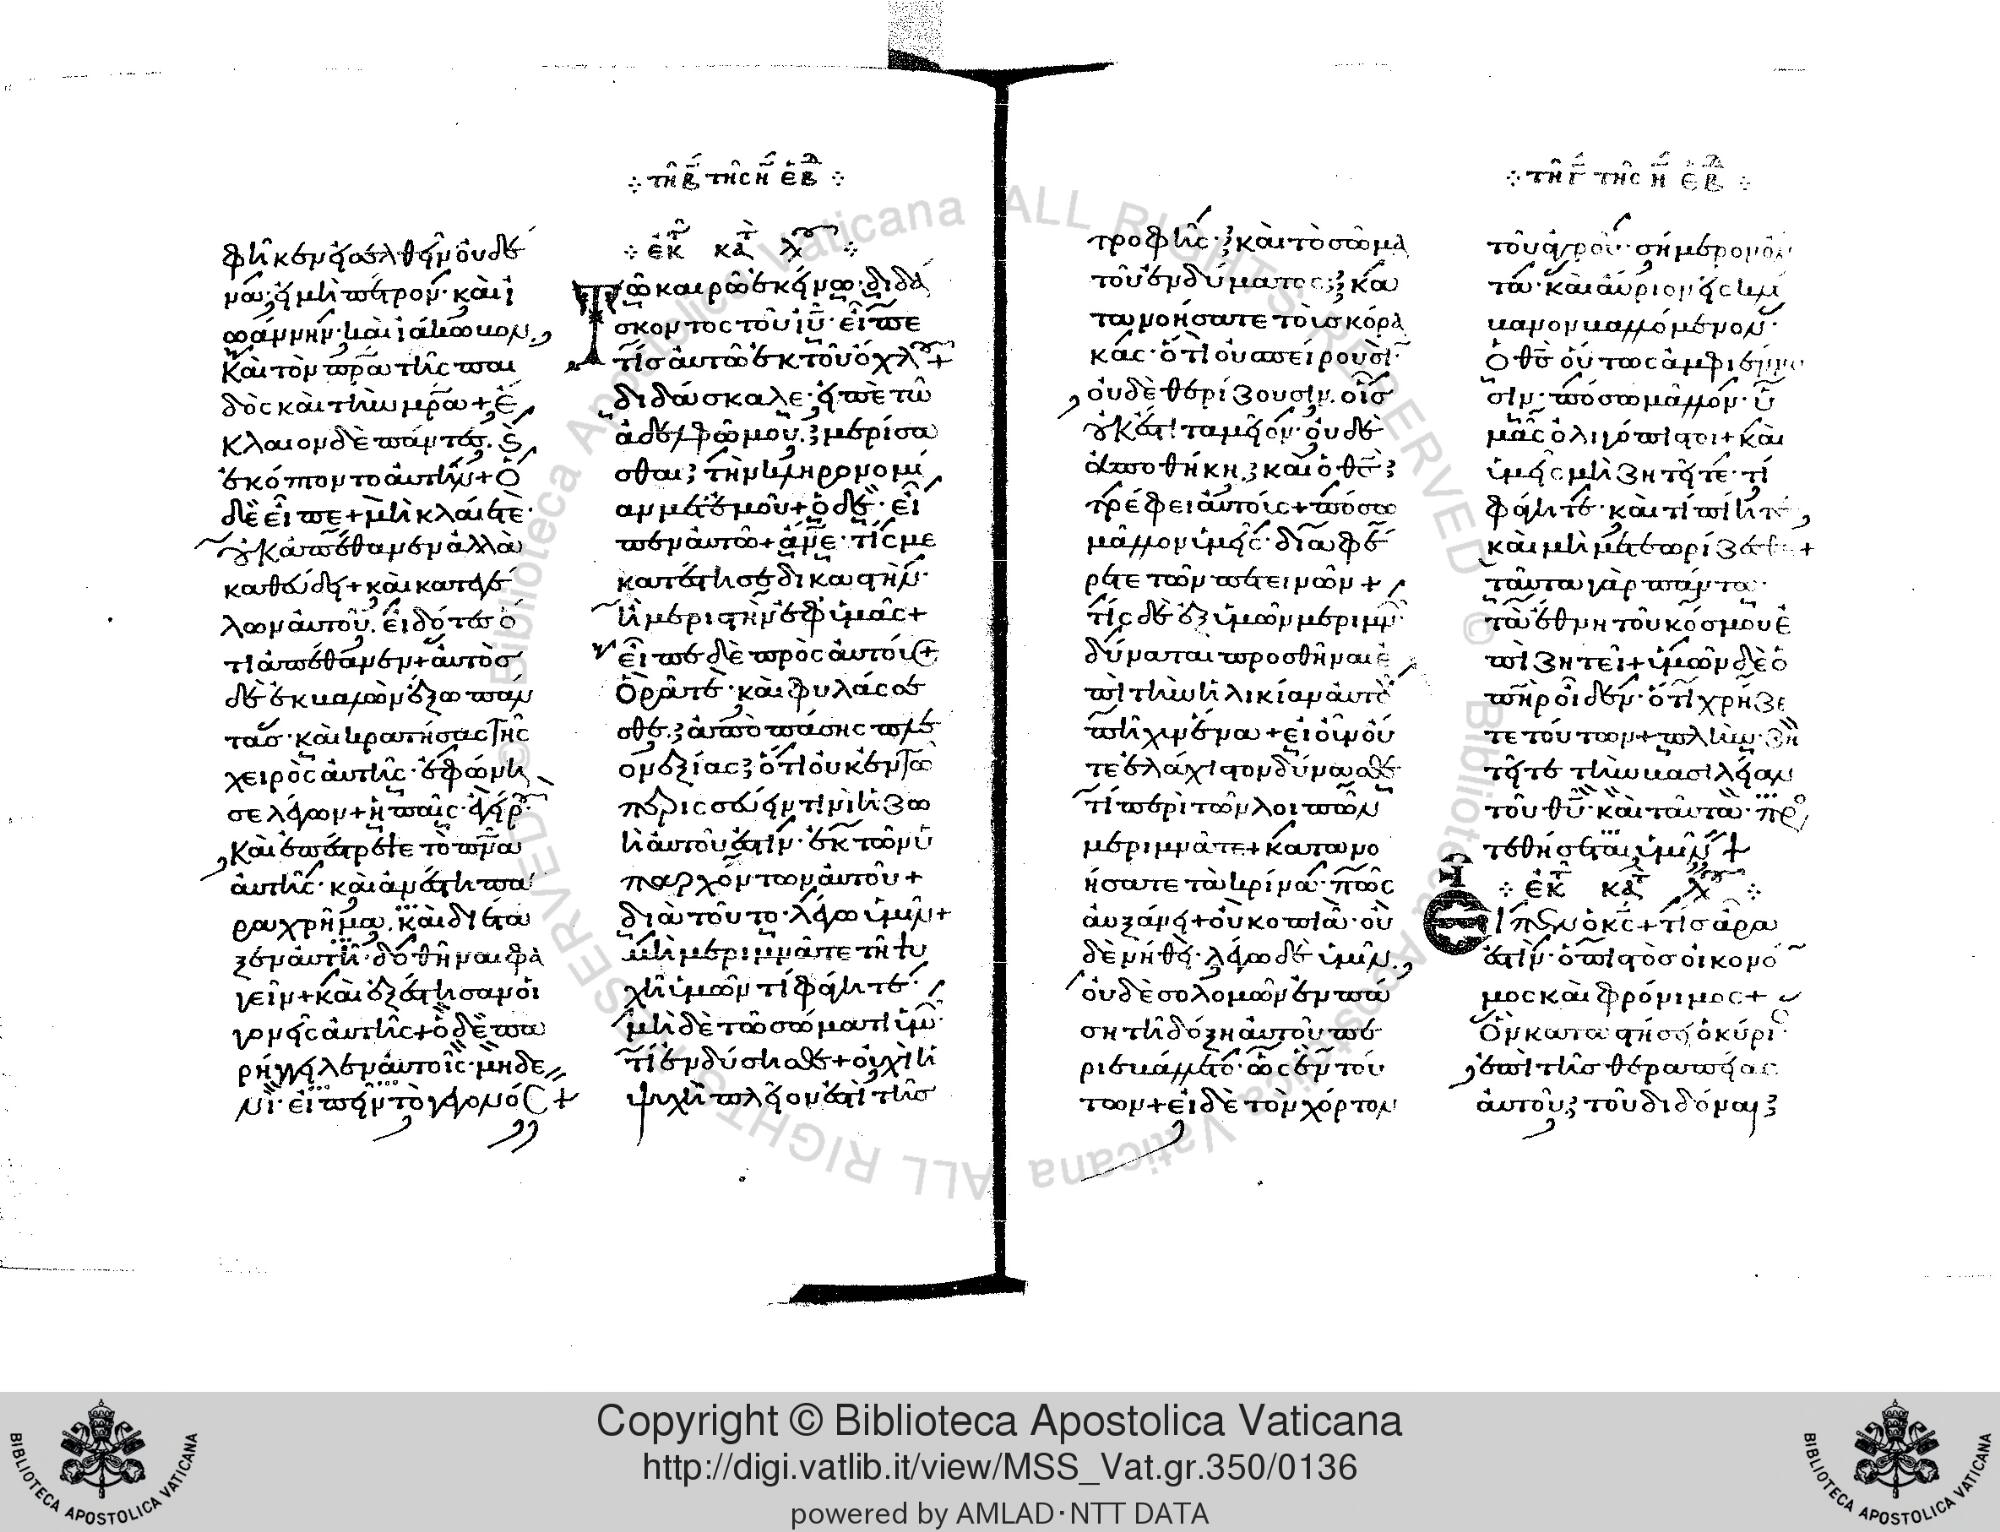 φῆκεν εἰσελθεῖν οὐδέ
να· εἰ μὴ πέτρον· καὶ ἰ
ωάννην· καὶ ἰάκωβον,
Καὶ τὸν πρα τῆς παι
δὸς καὶ τὴν μρα + ἔ
κλαιον δὲ πάντες. ἐ
ἐκόπτοντο αὐτὴν + Ὁ
δὲ εἶπε + μὴ κλαίετε·
οὐκ ἀπέθανεν ἀλλὰ
καθεύδει + καὶ κατεγέ
λων αὐτοῦ. εἰδότες ὅ
τι ἀπέθανεν + αὐτὸς
δὲ ἐκβαλὼν ἔξω πάν
τας· καὶ κρατήσας τῆς
χειρὸς αὐτῆς· ἐφώνη
σε λέγων + ἡ παῖς· ἐγείρ
Καὶ ἐπέστρεψε τὸ πνα
αὐτῆς· καὶ ἀνέστη πα
ραχρῆμα. καὶ διέτα
ξεν αὐτῇ· δοθῆναι φα
γεῖν + καὶ ἐξέστησαν οἱ
γονεῖς αὐτῆς + ὁ δὲ πα
ρήγγειλεν αὐτοῖς· μηδε
νὶ· εἰπεῖν τὸ γεγονός +
τῇ β τῆς η ἑβδ
ἐκ κατ λχ
Τῶ καιρῶ ἐκείνω· διδά
σκοντος τοῦ ιυ· εἶπέ
τίς αὐτῶ ἐκ τοῦ ὄχλ +
διδάσκαλε· εἰπὲ τῶ
ἀδελφῶ μου. μερίσα
σθαι τὴν κληρονομί
αν μετ' ἐμοῦ + ὁ δὲ· εἶ
πεν αὐτῶ + ἄνε· τίς με
κατέστησε δικαστὴν·
ἢ μεριστὴν ἐφ' ὑμᾶς +
εἶπε δὲ πρὸς αὐτού +
Ὁρᾶτε· καὶ φυλάσσε
σθε. ἀπὸ πάσης πλε
ονεξίας ὅτι οὐκ ἐν τῶ
περισσεύειν τινὶ ἡ ζω
ὴ αὐτοῦ ἐστὶν· ἐκ τῶν ὑ
παρχόντων αὐτοῦ +
διὰ τοῦτο· λέγω ὑμῖν +
μὴ μεριμνᾶτε τῇ ψυ
χῇ ὑμῶν τί φάγητε·
μὴ δὲ τῶ σώματι ὑμῶ·
τί ἐνδύσησθε + οὐχὶ ἡ
ψυχὴ πλεῖον ἐστὶ τῆς
τροφῆς· καὶ τὸ σῶμα
τοῦ ἐνδύματος κα
τανοήσατε τοὺς κόρα
κας· ὅτι οὐ σπείρουσι·
οὐδὲ θερίζουσιν. οἷς
οὐκ ἔστι ταμεῖον· οὐδὲ
ἀποθήκη καὶ ὁ θς
τρέφει αὐτοὺς + πόσω
μᾶλλον ὑμεῖς· διαφέ
ρετε τῶν πετεινῶν +
τίς δὲ ἐξ ὑμῶν μεριμν
δύναται προσθῆναι ἐ
πὶ τὴν ἡλικίαν αὐτοῦ
πῆχυν ἕνα + εἰ οὖν οὔ
τε ἐλάχιστον δύνασθε·
τί περὶ τῶν λοιπῶν
μεριμνᾶτε + κατανο
ήσατε τὰ κρίνα· πῶς
αὐξάνει + οὐ κοπιᾶ· οὐ
δὲ νήθει· λέγω δὲ ὑμῖν.
οὐδὲ σολομὼν ἐν πά
ση τῆ δόξη αὐτοῦ πε
ριεβάλλετο· ὡς ἓν τού
των + εἰ δὲ τὸν χόρτον
τῇ γ τῆς η ἑβδ
τοῦ ἀγροῦ· σήμερον ὄν
τα· καὶ αὔριον εἰς κλί
βανον βαλλόμενον·
ὁ θς οὕτως ἀμφιέννυ
σιν· πόσω μᾶλλον· ὑ
μᾶς ὀλιγόπιστοι + καὶ
ὑμεῖς μὴ ζητεῖτε· τί
φάγητε· καὶ τί πίητε,
καὶ μὴ μετεωρίζεσθε +
ταῦτα γὰρ πάντα·
τὰ ἔθνη τοῦ κόσμου ἐ
πιζητεῖ + ὑμῶν δὲ ὁ
πηρ οἶδεν· ὅτι χρήζε
τε τούτων + πλὴν· ζη
τεῖτε τὴν βασιλείαν
τοῦ θυ· καὶ ταῦτα· πρ
τεθήσεται ὑμῖν +
ἐκ κατ λχ
Εἶπεν ὁ κς + τίς ἄρα
ἐστὶν· ὁ πιστὸς οἰκονό
μος καὶ φρόνιμος +
Ὃν καταστήσει ὁ κύρι
ἐπὶ τῆς θεραπείας
αὐτοῦ τοῦ διδόναι
Copyright © Biblioteca Apostolica Vaticana
http://digi.vatlib.it/view/MSS_Vat.gr.350/0136
powered by AMLAD·NTT DATA